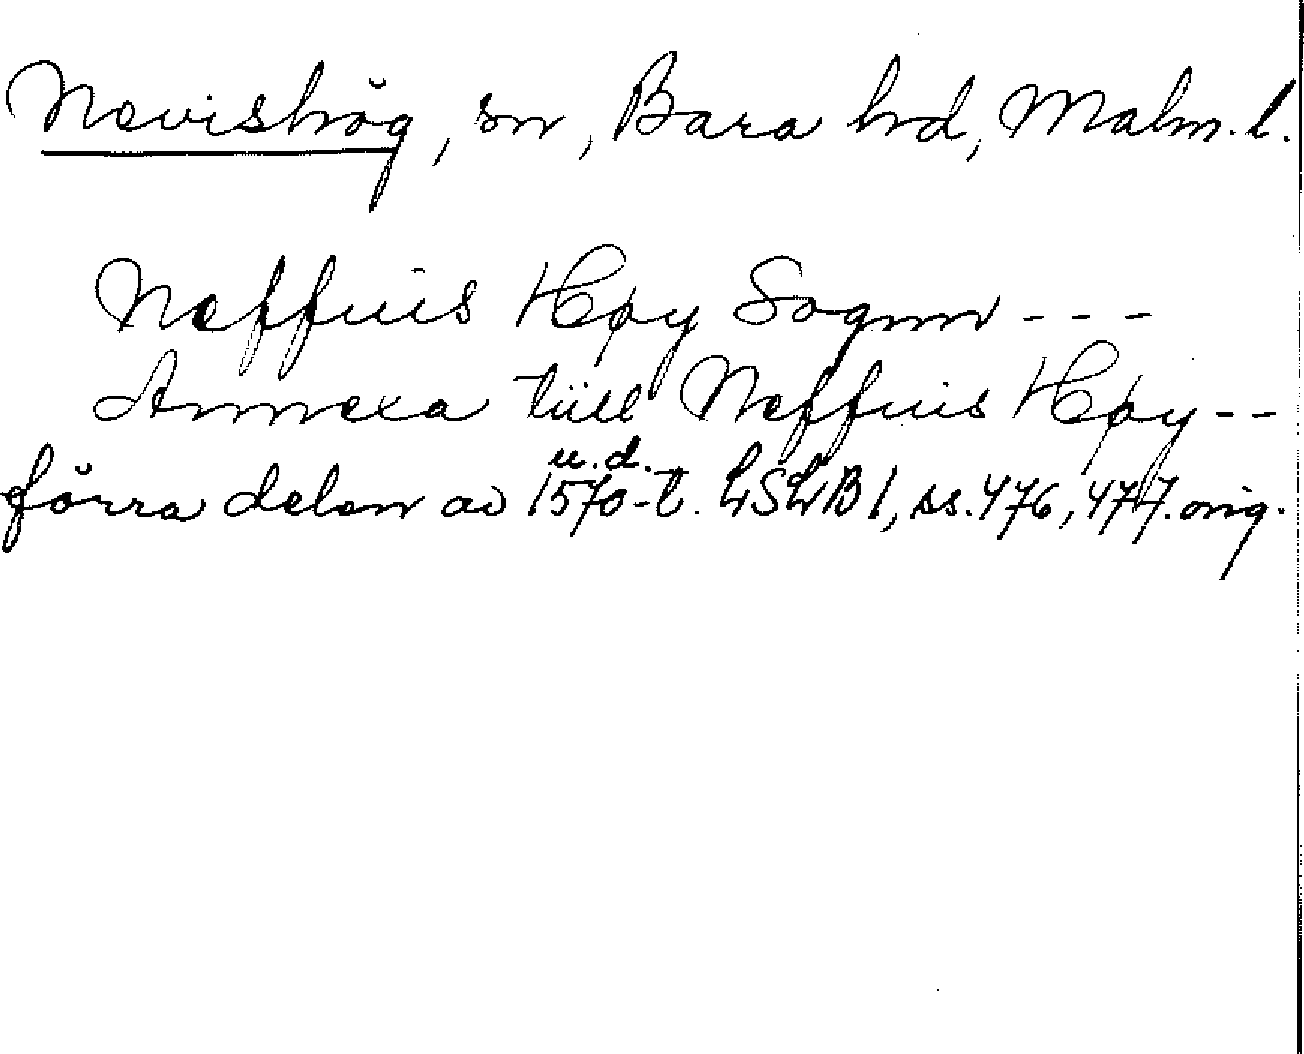 Nevishög, sn, Bara hd, Malm. l.
Neffuis Høy Sognn - - -
Annexa tüll Neffuis Høy - -
u. d.
förra delen av 1570-t. LSLB 1, ss. 476, 477. orig.